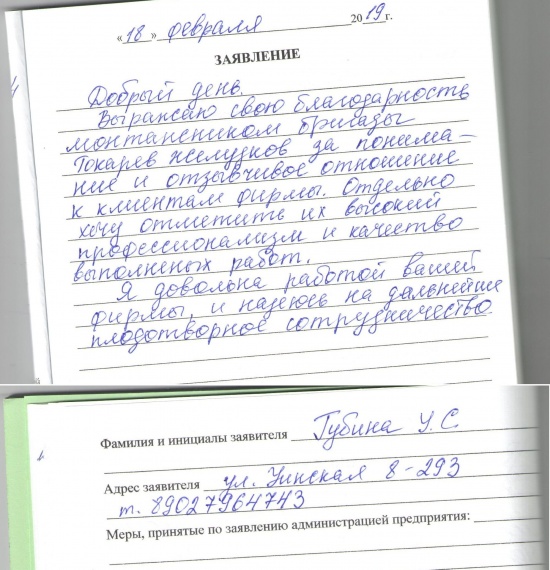 «18» февраля 2019 г.
ЗАЯВЛЕНИЕ
Добрый день.
Выражаю свою благодарность
монтажником бригады
Токарев желудков за понима-
ние и отзывчивое отношение
к клиентам фирмы. Отдельно
хочу отметить их высокий
профессионализм и качество
выполненых работ.
Я довольна работой вашей
фирмы, и надеюсь на дальнейшие
плодотворное сотрудничество.
Фамилия и инициалы заявителя Губина У.С.
Адрес заявителя ул. Уинская 8-293
т. 89027964743
Меры, принятые по заявлению администрацией предприятия: